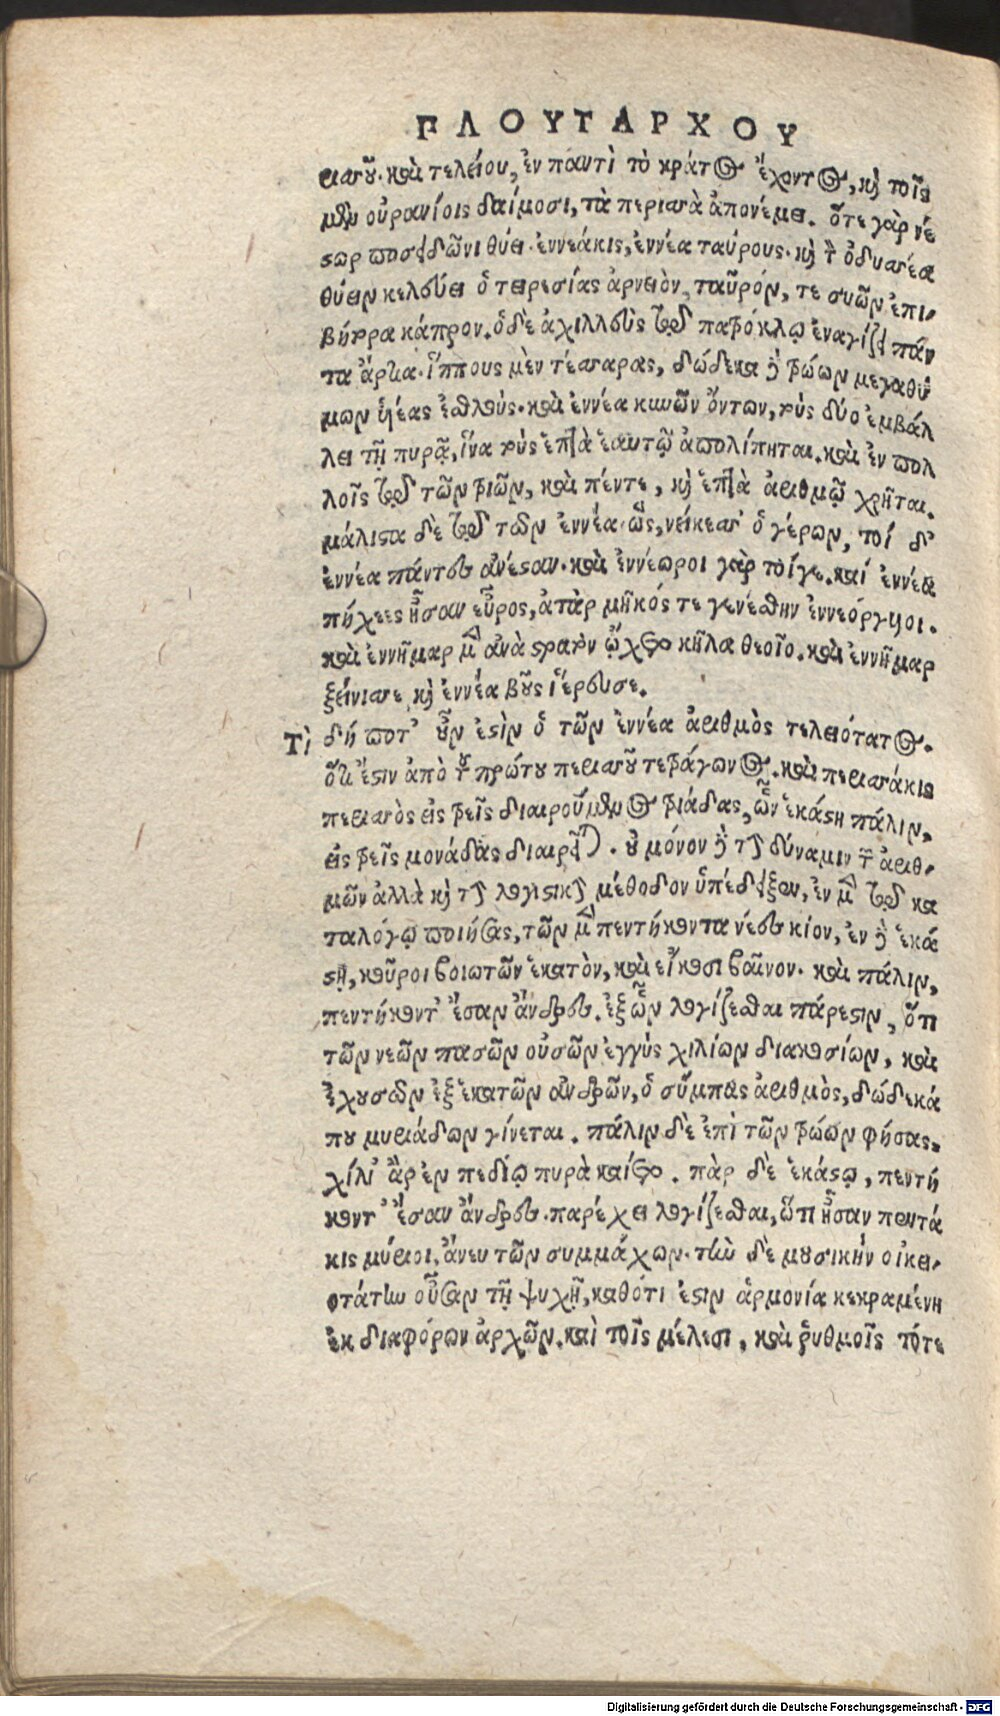 ΠΛΟΥΤΑΡΧΟΥ
ρισσοῦ. καὶ τελείου, ἐν παντὶ τὸ κράτος ἔχοντος, καὶ τοῖς
μὲν οὐρανίοις δαίμοσι, τὰ περισσὰ ἀπονέμει. ὅτε γὰρ νέ
στωρ ποσειδῶνι θύει. ἐννεάκις, ἐννέα ταύρους. καὶ τὸν ὀδυσσέα
θύειν κελεύει ὁ τειρεσίας ἀρνειὸν, ταῦρόν, τε συῶν ἐπι-
βήτορα κάπρον. ὁ δὲ ἀχιλλεὺς ἐπὶ πατρόκλῳ ἐναγίζει πάν
τα ἄρτια. ἵππους μὲν τέσσαρας, δώδεκα δὲ τρώων μεγαθύ
μων υἱέας ἐσθλούς. καὶ ἐννέα κυνῶν ὄντων, τοὺς δύο ἐμβάλ
λει τῇ πυρᾷ, ἵνα τοὺς ἑπτὰ ἑαυτῷ ἀπολίπηται. καὶ ἐν πολ
λοῖς ἐπὶ τῶν τριῶν, καὶ πέντε, καὶ ἑπτὰ ἀριθμῷ χρῆται.
μάλιστα δὲ ἐπὶ τῶν ἐννέα. ὣς, νείκεσσ' ὁ γέρων, τοί δ'
ἐννέα πάντες ἀνέσταν. καὶ ἐννέωροι γὰρ τοίγε. καί ἐννέα
πήχεες ἦσαν εὖρος, ἀτὰρ μῆκός τε γενέσθην ἐννεόργυιοι.
καὶ ἐννῆμαρ μὲν ἀνὰ στρατὸν ᾤχετο κῆλα θεοῖο. καὶ ἐννῆμαρ
ξείνισσε, καὶ ἐννέα βοῦς ἱέρευσε.
Τὶ δή ποτ' οὖν ἐστὶν ὁ τῶν ἐννέα ἀριθμὸς τελειότατος.
ὅτι ἔστιν ἀπὸ τοῦ πρώτου περισσοῦ τετράγωνος. καὶ περισσάκις
περισσὸς εἰς τρεῖς διαιρούμενος τριάδας, ὧν ἑκάστη πάλιν,
εἰς τρεῖς μονάδας διαιρεῖται. οὐ μόνον δὲ τὴν δύναμιν τῶν ἀριθ-
μῶν ἀλλὰ καὶ τὴν λογιστικὴν μέθοδον ὑπέδειξεν, ἐν μὲν τῷ κα
ταλόγῳ ποιήσας, τῶν μὲν πεντήκοντα νέες κίον, ἐν δὲ ἑκά
στῃ, κοῦροι βοιωτῶν ἑκατὸν, καὶ εἴκοσι βαῖνον. καὶ πάλιν,
πεντήκοντ' ἔσαν ἄνδρες. ἐξ ὧν λογίζεσθαι πάρεστιν, ὅτι
τῶν νεῶν πασῶν οὐσῶν ἐγγὺς χιλίων διακοσίων, καὶ
ἐχουσῶν ἐξ ἑκατῶν ἀνδρῶν, ὁ σύμπας ἀριθμὸς, δώδεκά
που μυριάδων γίνεται. πάλιν δὲ ἐπὶ τῶν τρώων φήσας.
χίλι' ἂρ ἐν πεδίῳ πυρὰ καίετο. πὰρ δὲ ἑκάστῳ, πεντή
κοντ' ἔσαν ἄνδρες. παρέχει λογίζεσθαι, ὅτι ἦσαν πεντά
κις μύριοι, ἄνευ τῶν συμμάχων. τὴν δὲ μουσικήν οἰκει-
οτάτην οὖσαν τῇ ψυχῇ, καθότι ἐστὶν ἁρμονία κεκραμένη
ἐκ διαφόρων ἀρχῶν. καὶ τοῖς μέλεσι, καὶ ῥυθμοῖς τότε
Digitalisierung gefördert durch die Deutsche Forschungsgemeinschaft - DFG